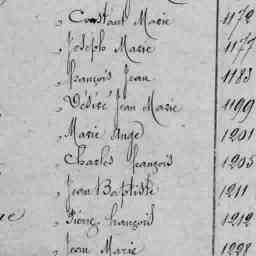 " Constant Marie 1172
" Joseph Marie 1177
" François Jean 1183
" Désiré Jean Marie 1199
" Marie Ange 1201
" Charles François 1205
" Jean Baptiste 1211
" Pierre François 1212
" Jean Marie 1228